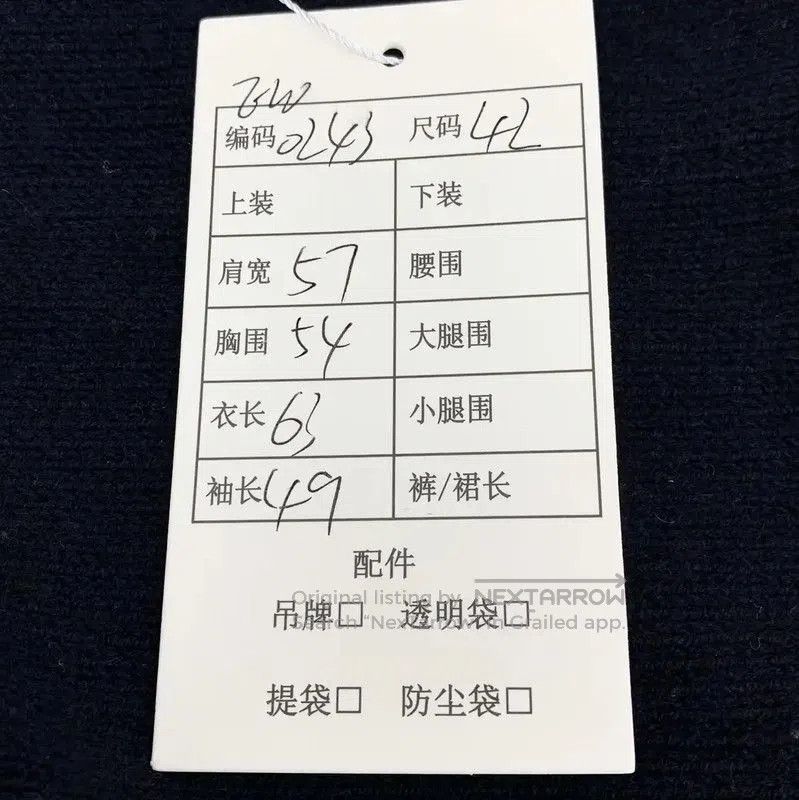 ZGW
编码 0243 尺码 42
上装 下装
肩宽 57 腰围
胸围 54 大腿围
衣长 63 小腿围
袖长 49 裤/裙长
配件
Original listing by NEXTARROW
吊牌□ 透明袋□
Search "NextArrow" on Grailed app.
提袋□ 防尘袋□